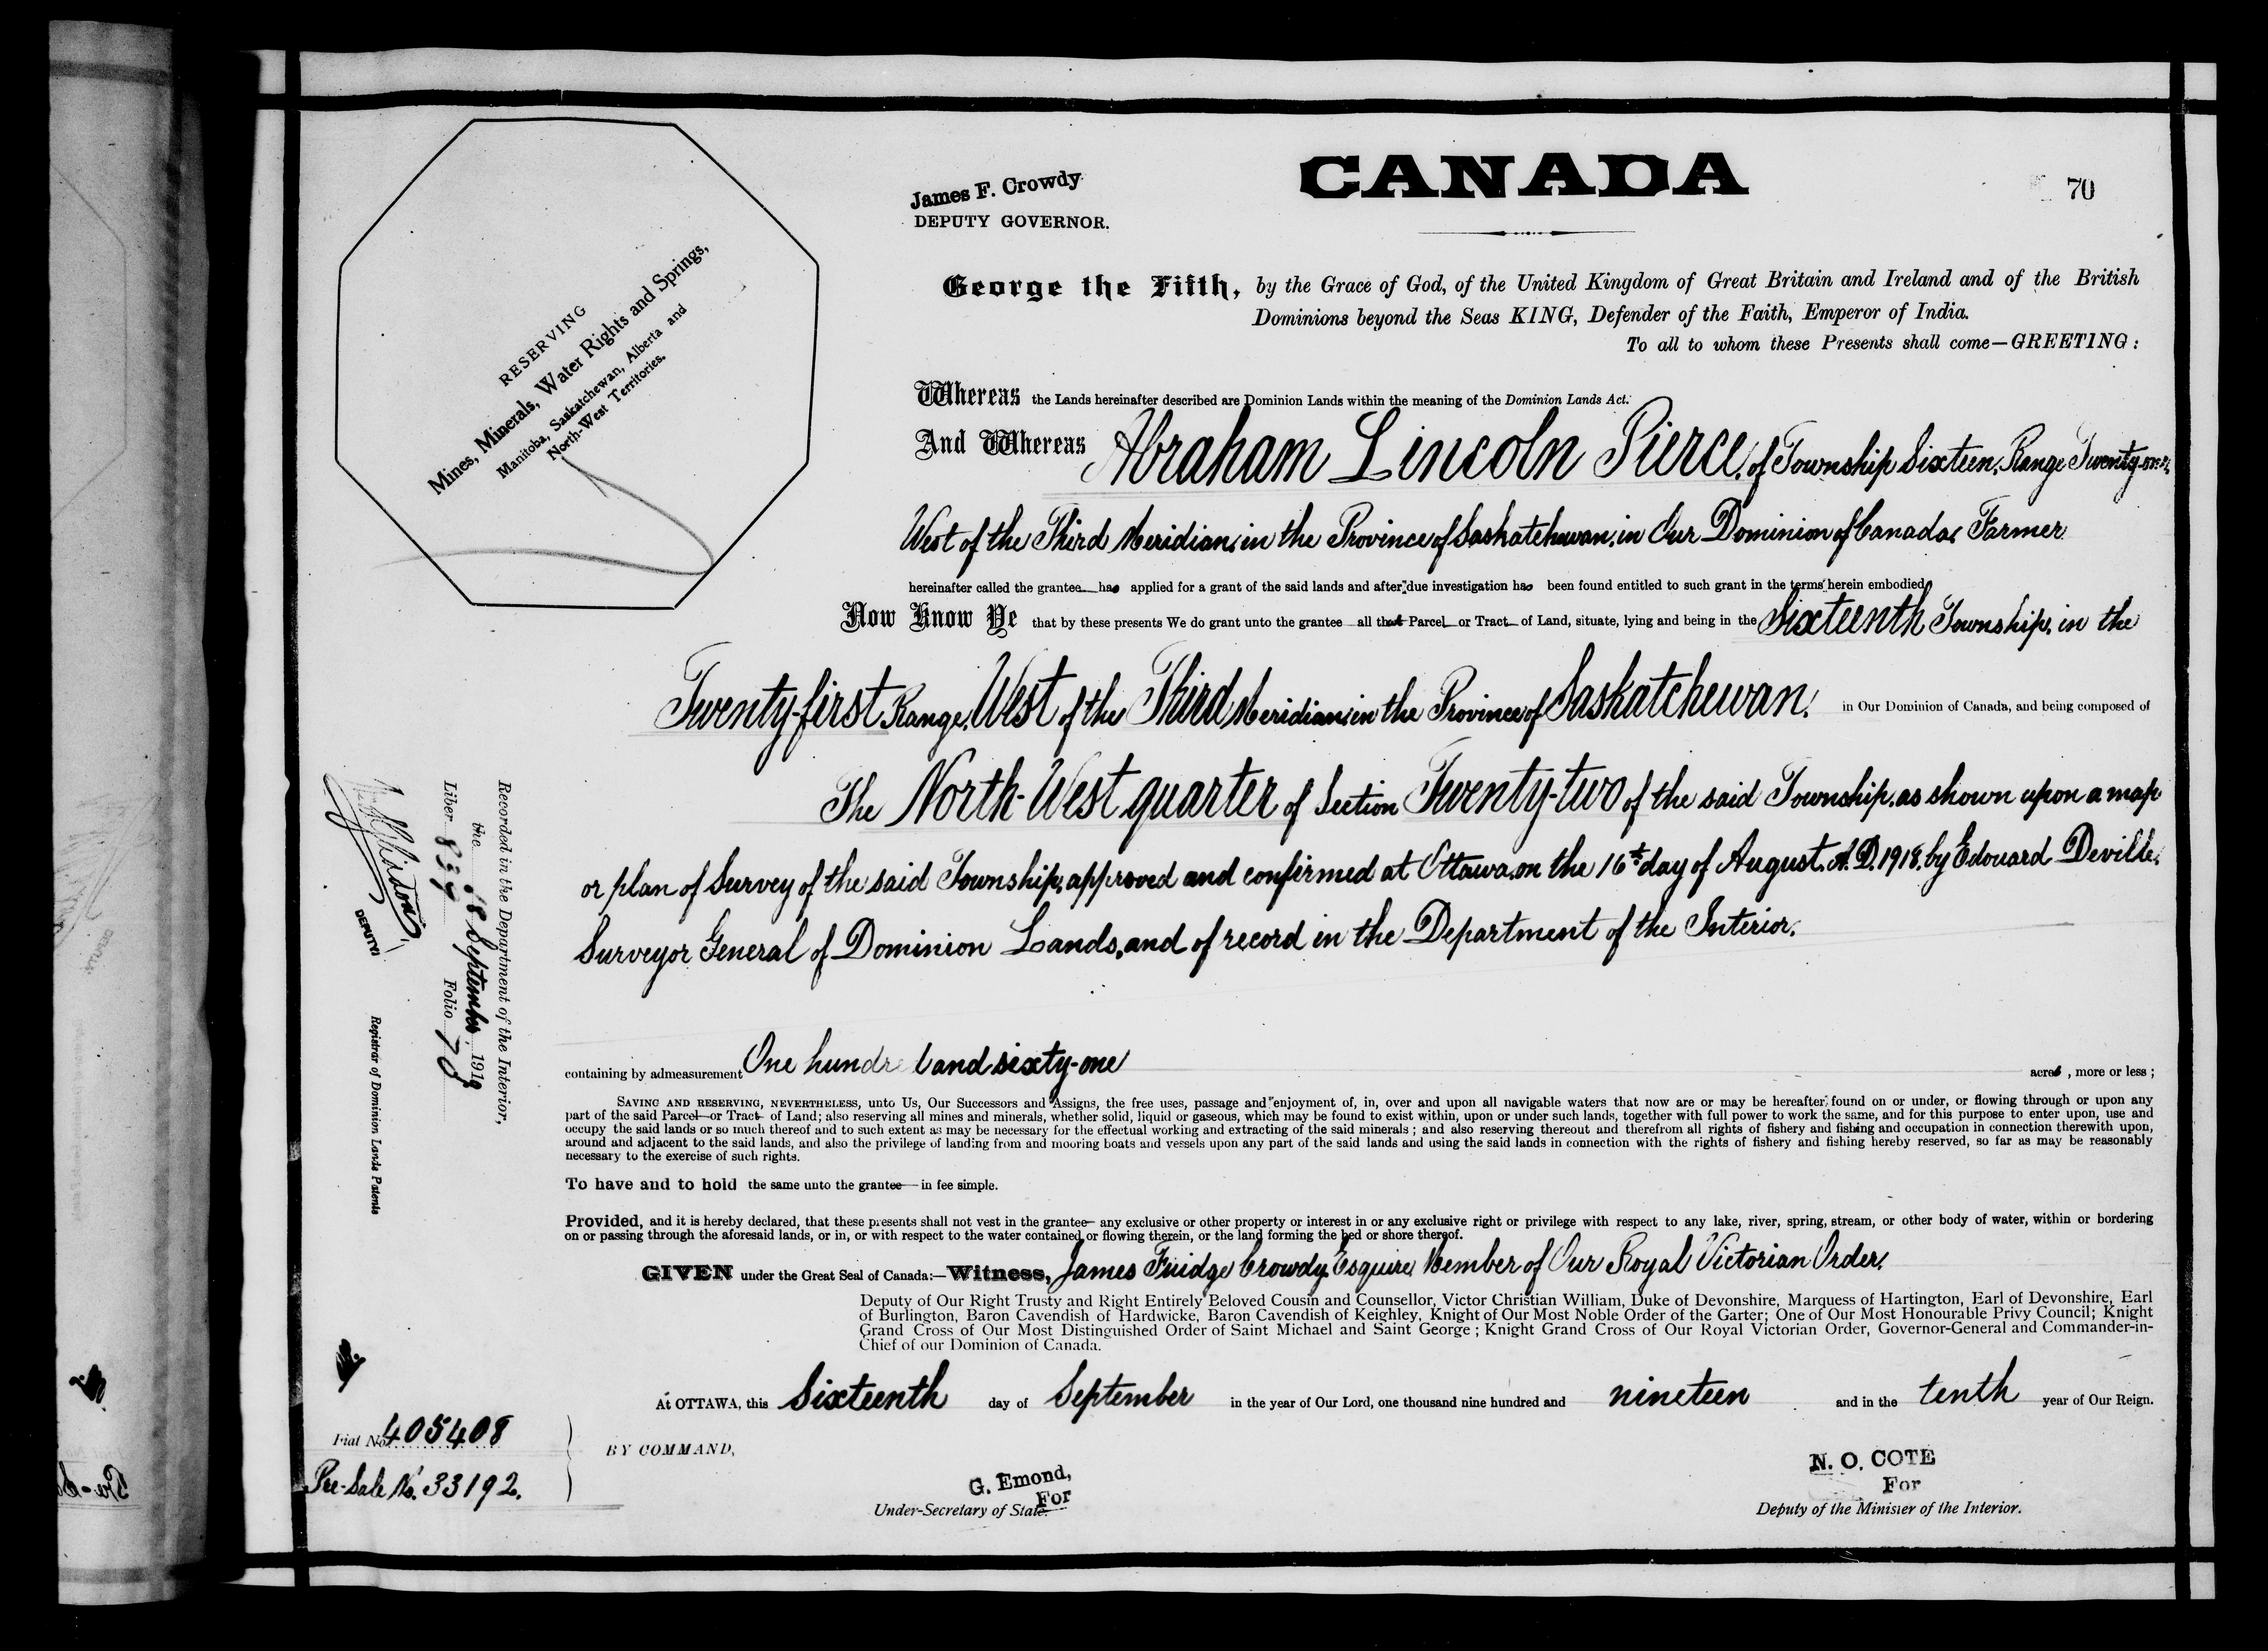 CANADA
70
James F. Crowdy
DEPUTY GOVERNOR.
RESERVING
Mines, Minerals, Water Rights and Springs,
Manitoba, Saskatchewan, Alberta and
North-West Territories.
George the Fifth, by the Grace of God, of the United Kingdom of Great Britain and Ireland and of the British
Dominions beyond the Seas KING, Defender of the Faith, Emperor of India.
To all to whom these Presents shall come—GREETING:
Whereas the Lands hereinafter described are Dominion Lands within the meaning of the Dominion Lands Act.
And Whereas Abraham Lincoln Pierce, of Township Sixteen, Range Twenty-one,
West of the Third Meridian, in the Province of Saskatchewan, in Our Dominion of Canada, Farmer
hereinafter called the grantee has applied for a grant of the said lands and after due investigation has been found entitled to such grant in the terms herein embodied
Now Know Ye that by these presents We do grant unto the grantee all that Parcel or Tract of Land, situate, lying and being in the Sixteenth Township, in the
Twenty-first Range, West of the Third Meridian, in the Province of Saskatchewan, in Our Dominion of Canada, and being composed of
The North-West quarter of Section Twenty-two of the said Township, as shown upon a map
or plan of Survey of the said Township, approved and confirmed at Ottawa, on the 16th day of August, A.D. 1918, by Edouard Deville,
Surveyor General of Dominion Lands, and of record in the Department of the Interior.
containing by admeasurement One hundred and sixty-one acres, more or less;
SAVING AND RESERVING, NEVERTHELESS, unto Us, Our Successors and Assigns, the free uses, passage and enjoyment of, in, over and upon all navigable waters that now are or may be hereafter found on or under, or flowing through or upon any
part of the said Parcel or Tract of Land; also reserving all mines and minerals, whether solid, liquid or gaseous, which may be found to exist within, upon or under such lands, together with full power to work the same, and for this purpose to enter upon, use and
occupy the said lands or so much thereof and to such extent as may be necessary for the effectual working and extracting of the said minerals; and also reserving thereout and therefrom all rights of fishery and fishing and occupation in connection therewith upon,
around and adjacent to the said lands, and also the privilege of landing from and mooring boats and vessels upon any part of the said lands and using the said lands in connection with the rights of fishery and fishing hereby reserved, so far as may be reasonably
necessary to the exercise of such rights.
To have and to hold the same unto the grantee in fee simple.
Provided, and it is hereby declared, that these presents shall not vest in the grantee any exclusive or other property or interest in or any exclusive right or privilege with respect to any lake, river, spring, stream, or other body of water, within or bordering
on or passing through the aforesaid lands, or in, or with respect to the water contained or flowing therein, or the land forming the bed or shore thereof.
GIVEN under the Great Seal of Canada:—Witness, James Fuidge Crowdy, Esquire, Member of Our Royal Victorian Order,
Deputy of Our Right Trusty and Right Entirely Beloved Cousin and Counsellor, Victor Christian William, Duke of Devonshire, Marquess of Hartington, Earl of Devonshire, Earl
of Burlington, Baron Cavendish of Hardwicke, Baron Cavendish of Keighley, Knight of Our Most Noble Order of the Garter; One of Our Most Honourable Privy Council; Knight
Grand Cross of Our Most Distinguished Order of Saint Michael and Saint George; Knight Grand Cross of Our Royal Victorian Order, Governor-General and Commander-in-
Chief of our Dominion of Canada.
At OTTAWA, this Sixteenth day of September in the year of Our Lord, one thousand nine hundred and nineteen and in the tenth year of Our Reign.
BY COMMAND,
G. Emond,
For
Under-Secretary of State.
N. O. COTE
For
Deputy of the Minister of the Interior.
Recorded in the Department of the Interior,
the 18 September 1919
Liber 839 Folio 70
DEPUTY
Registrar of Dominion Lands Patents
Fiat No. 405408
Pre-Sale No. 33192.